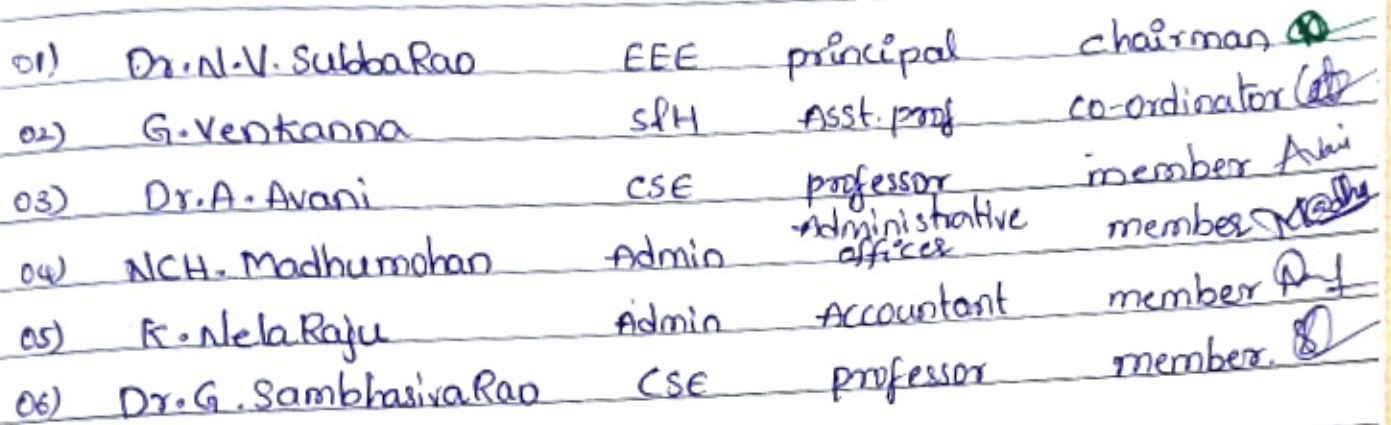 01) Dr.N.V.SubbaRao EEE principal chairman
02) G.Venkanna S&H Asst.prof co-ordinator
03) Dr.A.Avani CSE professor member Avani
04) NCH.Madhumohan Admin Administrative officer member Madhu
05) K.NelaRaju Admin Accountant member
06) Dr.G.SambhasivaRao CSE professor member.